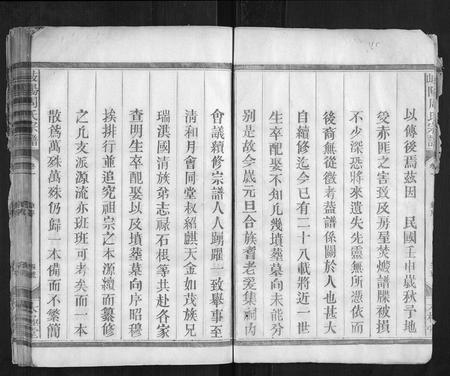 岐陽周氏宗譜
以傳後焉茲因 民國壬申歲秋予地
受赤匪之害致及房屋焚燬譜牒被損
不少深恐將來遺失先靈無所憑依而
後裔無從徵考蓋譜係關於人也甚大
自續修迄今已有二十八載將近一世
生卒配娶不知凡幾墳塋墓向未能分
別是故今歲元旦合族耆老爰集祠內
會議續修宗譜人人踴躍一致舉事至
清和月會同堂叔紹麒天金如茂族兄
瑞淇國清族弟志祿石根等共赴各家
查明生卒配娶以及墳塋墓向序昭穆
挨排行並追究祖宗之本源續而纂修
之凡支派源流亦班班可考矣而一本
散為萬殊萬殊仍歸一本備而不繁簡
岐陽周氏宗譜